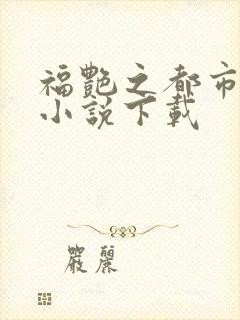 福艷之都市
小說下載
嚴麗